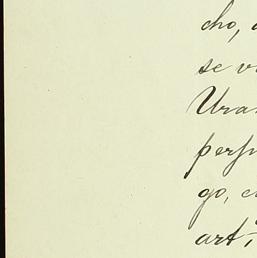 cho,
se v
Ura
perfu
go, c
art